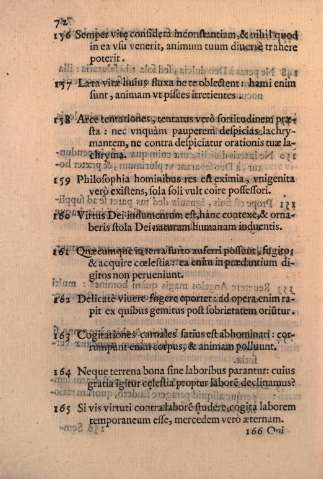 72
156 Semper vitę considera inconstantiam, & nihil quod
in ea vsu venerit, animum tuum diuersè trahere
poterit.
157 Læta vitæ huius fluxa ne te oblectent: hami enim
sunt, animam vt pisces irretientes.
158 Arce tentationes, tentatus verò fortitudinem præ-
sta: nec vnquàm pauperem despicias lachry-
mantem, ne contra despiciatur orationis tuæ la-
chryma.
159 Philosophia hominibus res est eximia, vnigenita
verò existens, sola soli vult coire possessori.
160 Virtus Dei indumentum est, hanc contexe, & orna-
beris stola Dei naturam humanam induentis.
161 Quæcumque in terra furto auferri possunt, fugito;
& acquire cœlestia: ea enim in prædantium di-
giros non perueniunt.
162 Delicatè viuere fugere oportet: ad opera enim ra-
pit ex quibus gemitus post sobrietatem oriūtur.
163 Cogitationes carnales satius est abhominari: cor-
rumpunt enim corpus, & animam polluunt.
164 Neque terrena bona sine laboribus parantur: cuius
gratia igitur cęlestia proptur laborē declinamus?
165 Si vis virtuti contra laborē studere, cogita laborem
temporaneum esse, mercedem verò æternam.
166 Oni